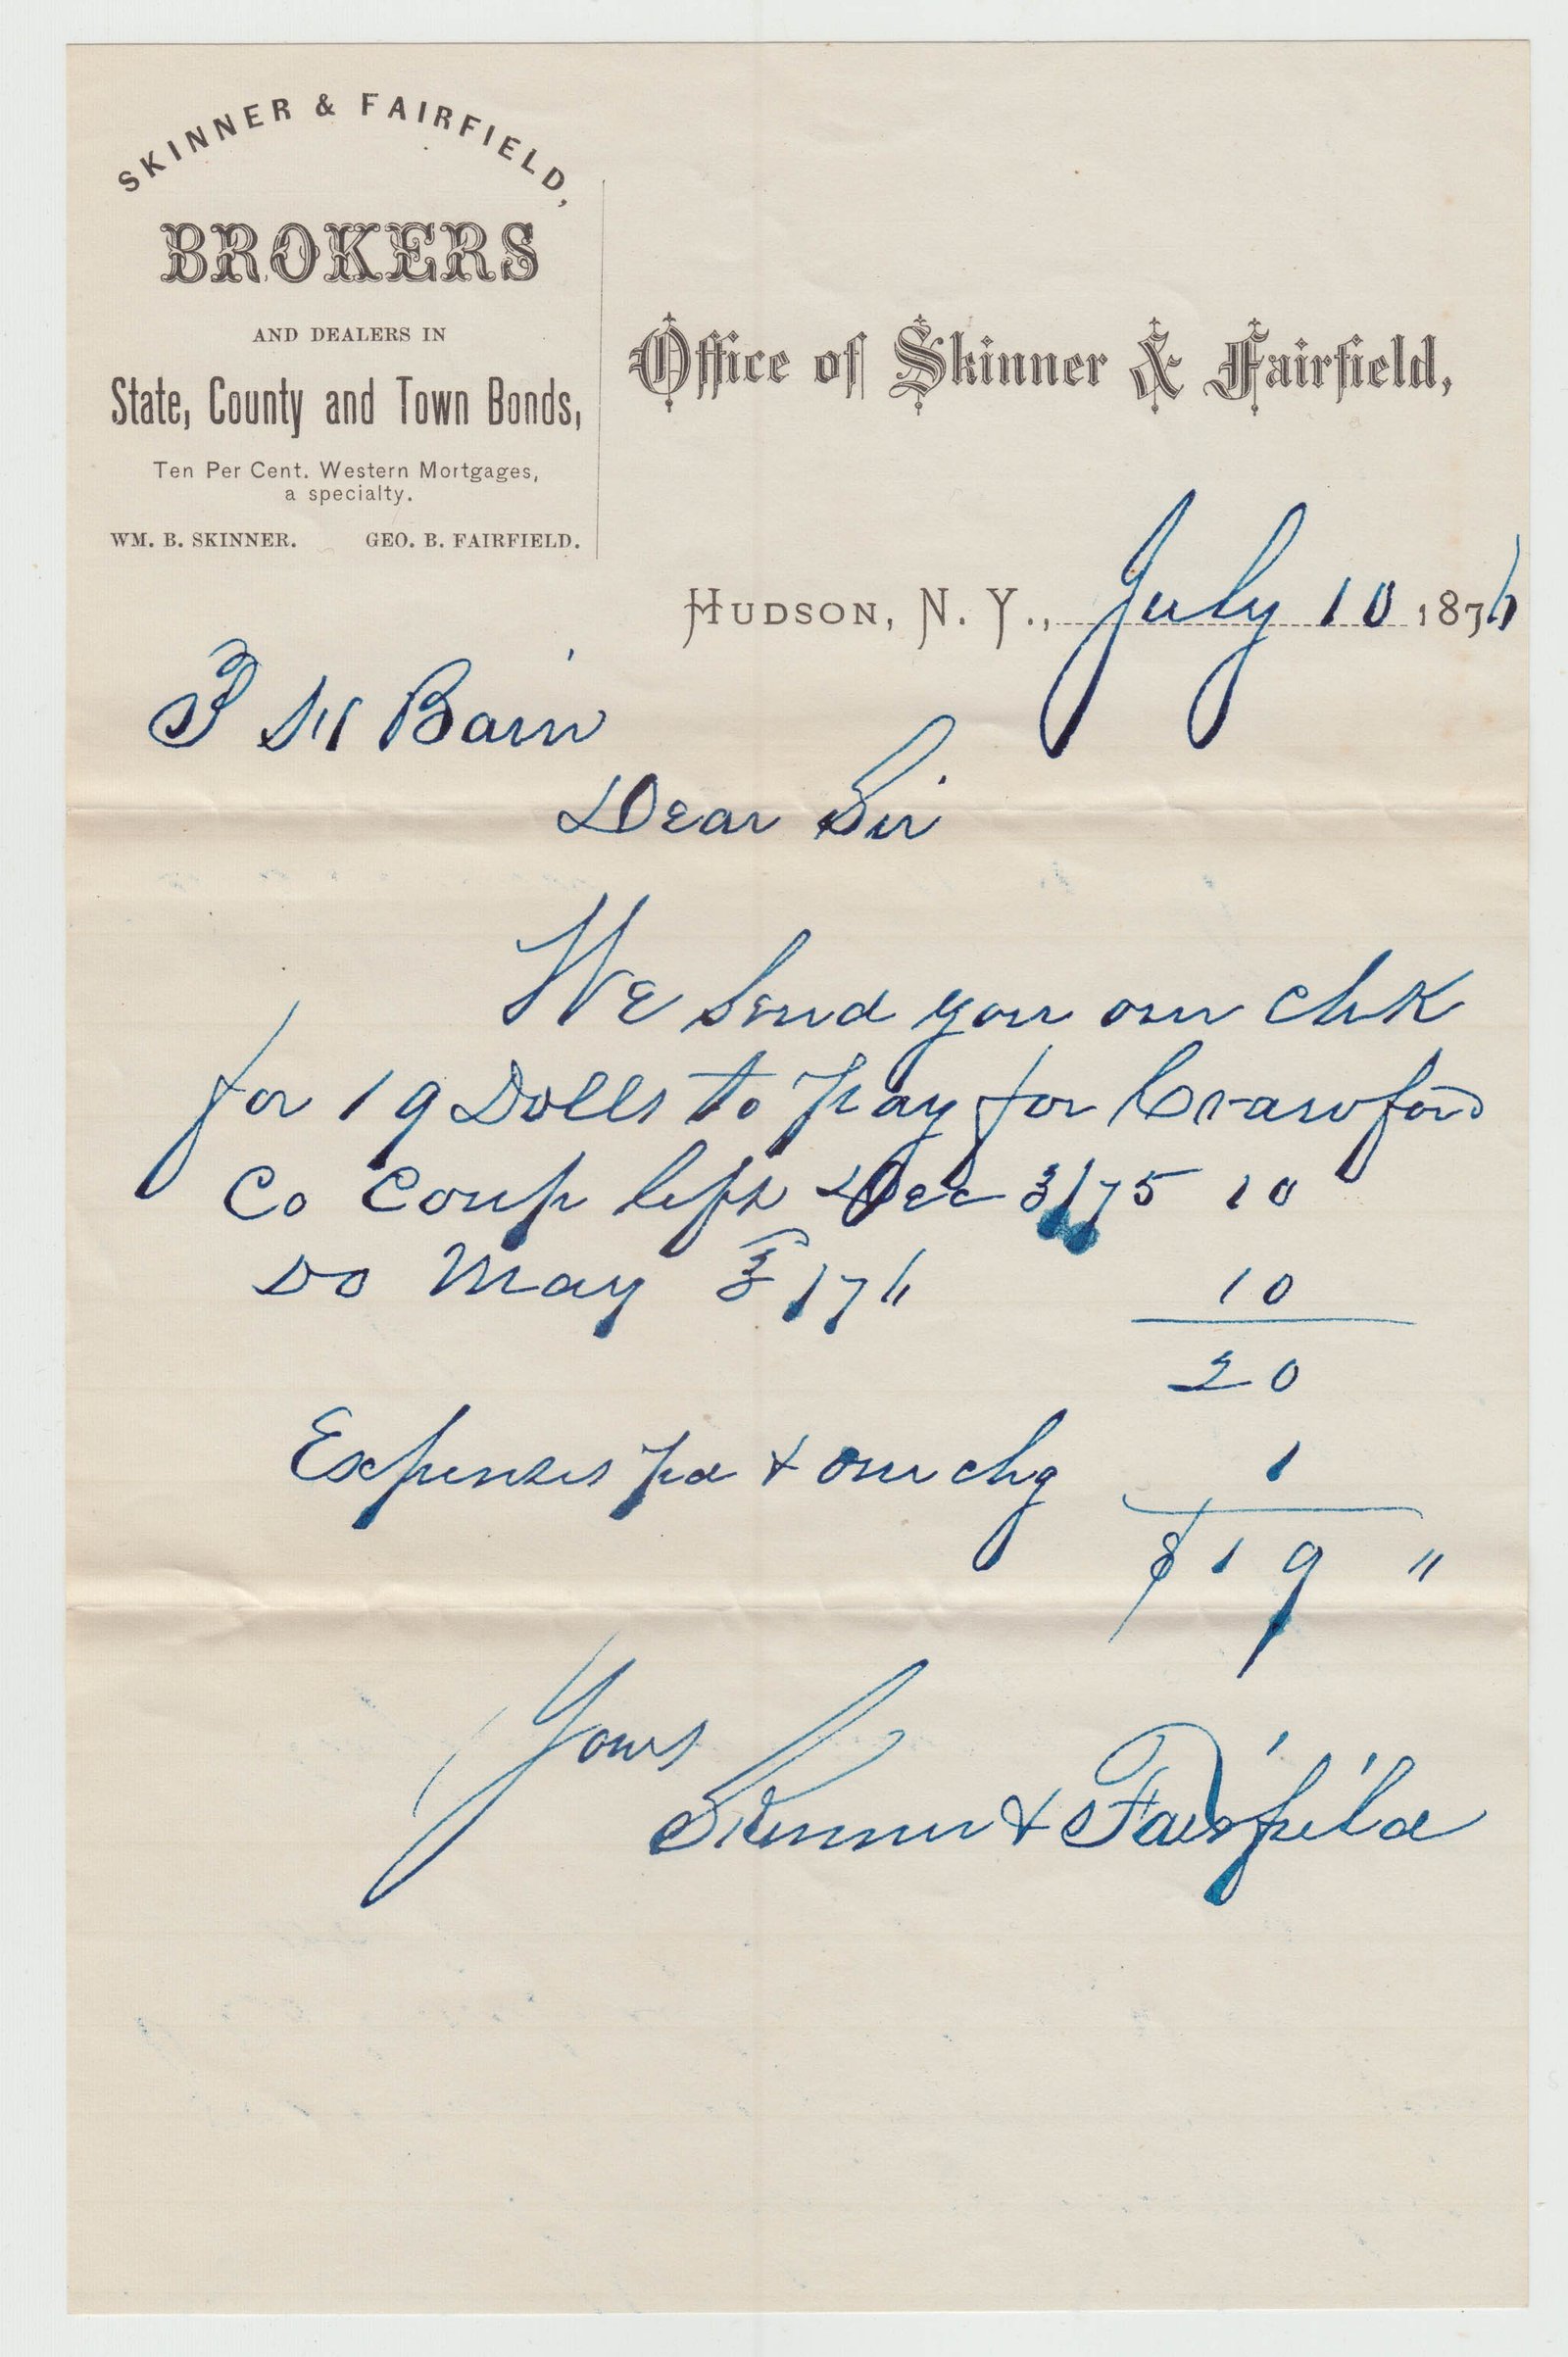 SKINNER & FAIRFIELD,
BROKERS
AND DEALERS IN
State, County and Town Bonds,
Ten Per Cent. Western Mortgages,
a specialty.
WM. B. SKINNER. GEO. B. FAIRFIELD.
Office of Skinner & Fairfield,
HUDSON, N. Y., July 10 1876
Bain
Dear Sir
We send you our chk
for 19 Dolls to Pay for Crawford
Co Coup left Dec 3/75 10
Do May 3/76 10
20
Expenses pd & our chg 1
$19 "
Yours
Skinner & Fairfield